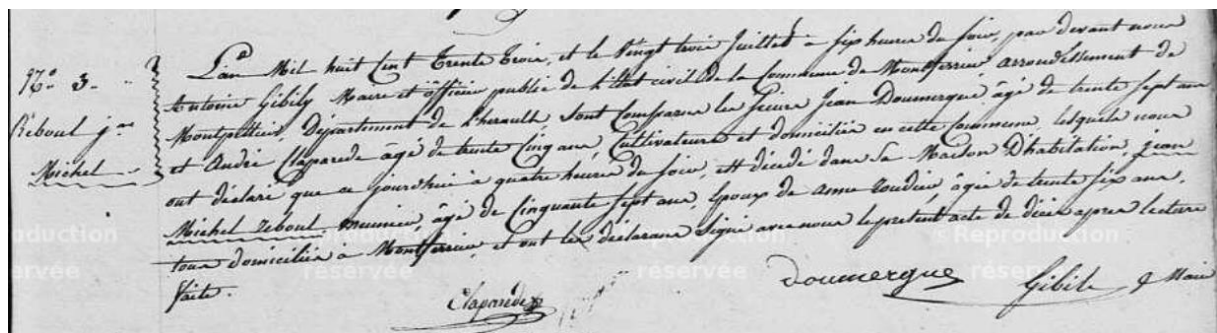 N.° 3.
Reboul jn
Michel
L'an Mil huit Cent Trente Trois, et le Vingt trois Juillet à six heures du soir, par devant nous
Antoine Gibily Maire et officier public de l'état civil de la Commune de Montferrier arrondissement de
Montpellier, Département de l'herault sont Comparus les sieurs Jean Doumergue âgé de trente sept ans
et André Claparede âgé de trente Cinq ans, Cultivateurs et domiciliés en cette Commune, lesquels nous
ont déclaré que ce jourd'hui à quatre heures du soir, est décédé dans sa Maison D'habitation, jean
Michel reboul meunier âgé de Cinquante sept ans, Epoux de anne âgée de trente six ans,
tous domiciliés à Montferrier, et ont les déclarans signé avec nous le présent acte de décès après lecture
faite.
Claparede
Doumergue
Gibily Maire
© Reproduction réservée
réservée
réservée
© Reproduction réservée